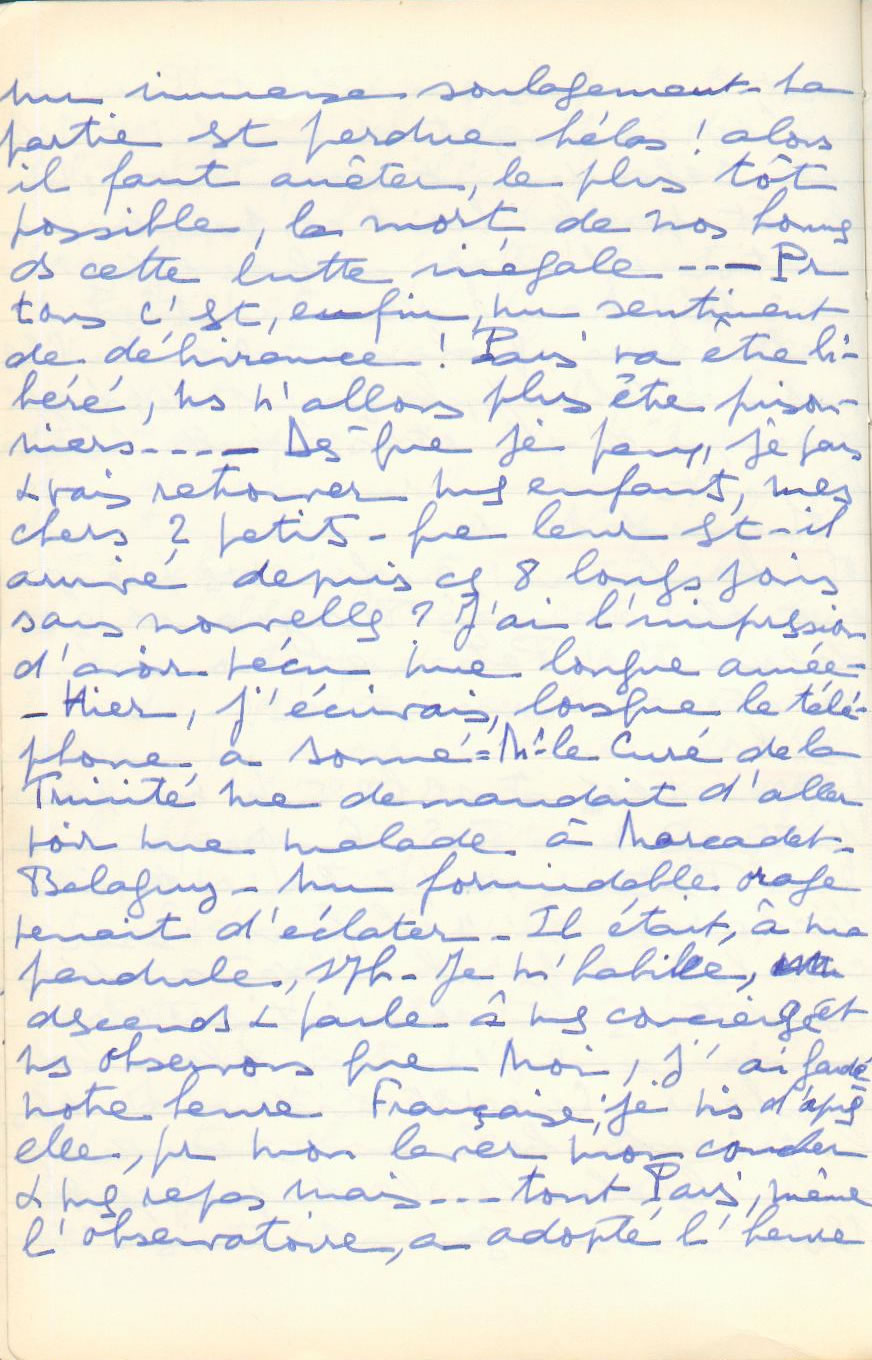 un immense soulagement - La
partie st perdue hélas ! alors
il faut arrêter, le plus tôt
possible, la mort de nos homes
ds cette lutte inégale ---- Pr
tous c'st, enfin, un sentiment
de délivrance ! Paris va être li-
béré, ns n'allons plus être prison-
niers ---- Dès que je peux, je pars
& vais retrouver mes enfants, mes
chers 2 petits - que leur st-il
arrivé depuis cs 8 longs jours
sans nouvelles ? J'ai l'impression
d'avoir vécu une longue année -
- Hier, j'écrivais, lorsque le télé-
phone a sonné = Mr le Curé de la
Trinité me demandait d'aller
voir une malade à Marcadet-
Balagny - Un formidable orage
venait d'éclater - Il était, à ma
pendule, 17h - Je m'habille,
descends & parle à mes concierges et
ns observons que Moi, j'ai gardé
notre heure Française, je vis d'après
elle, pr mon lever mon coucher
& mes repas mais --- tout Paris, même
l'observatoire, a adopté l'heure